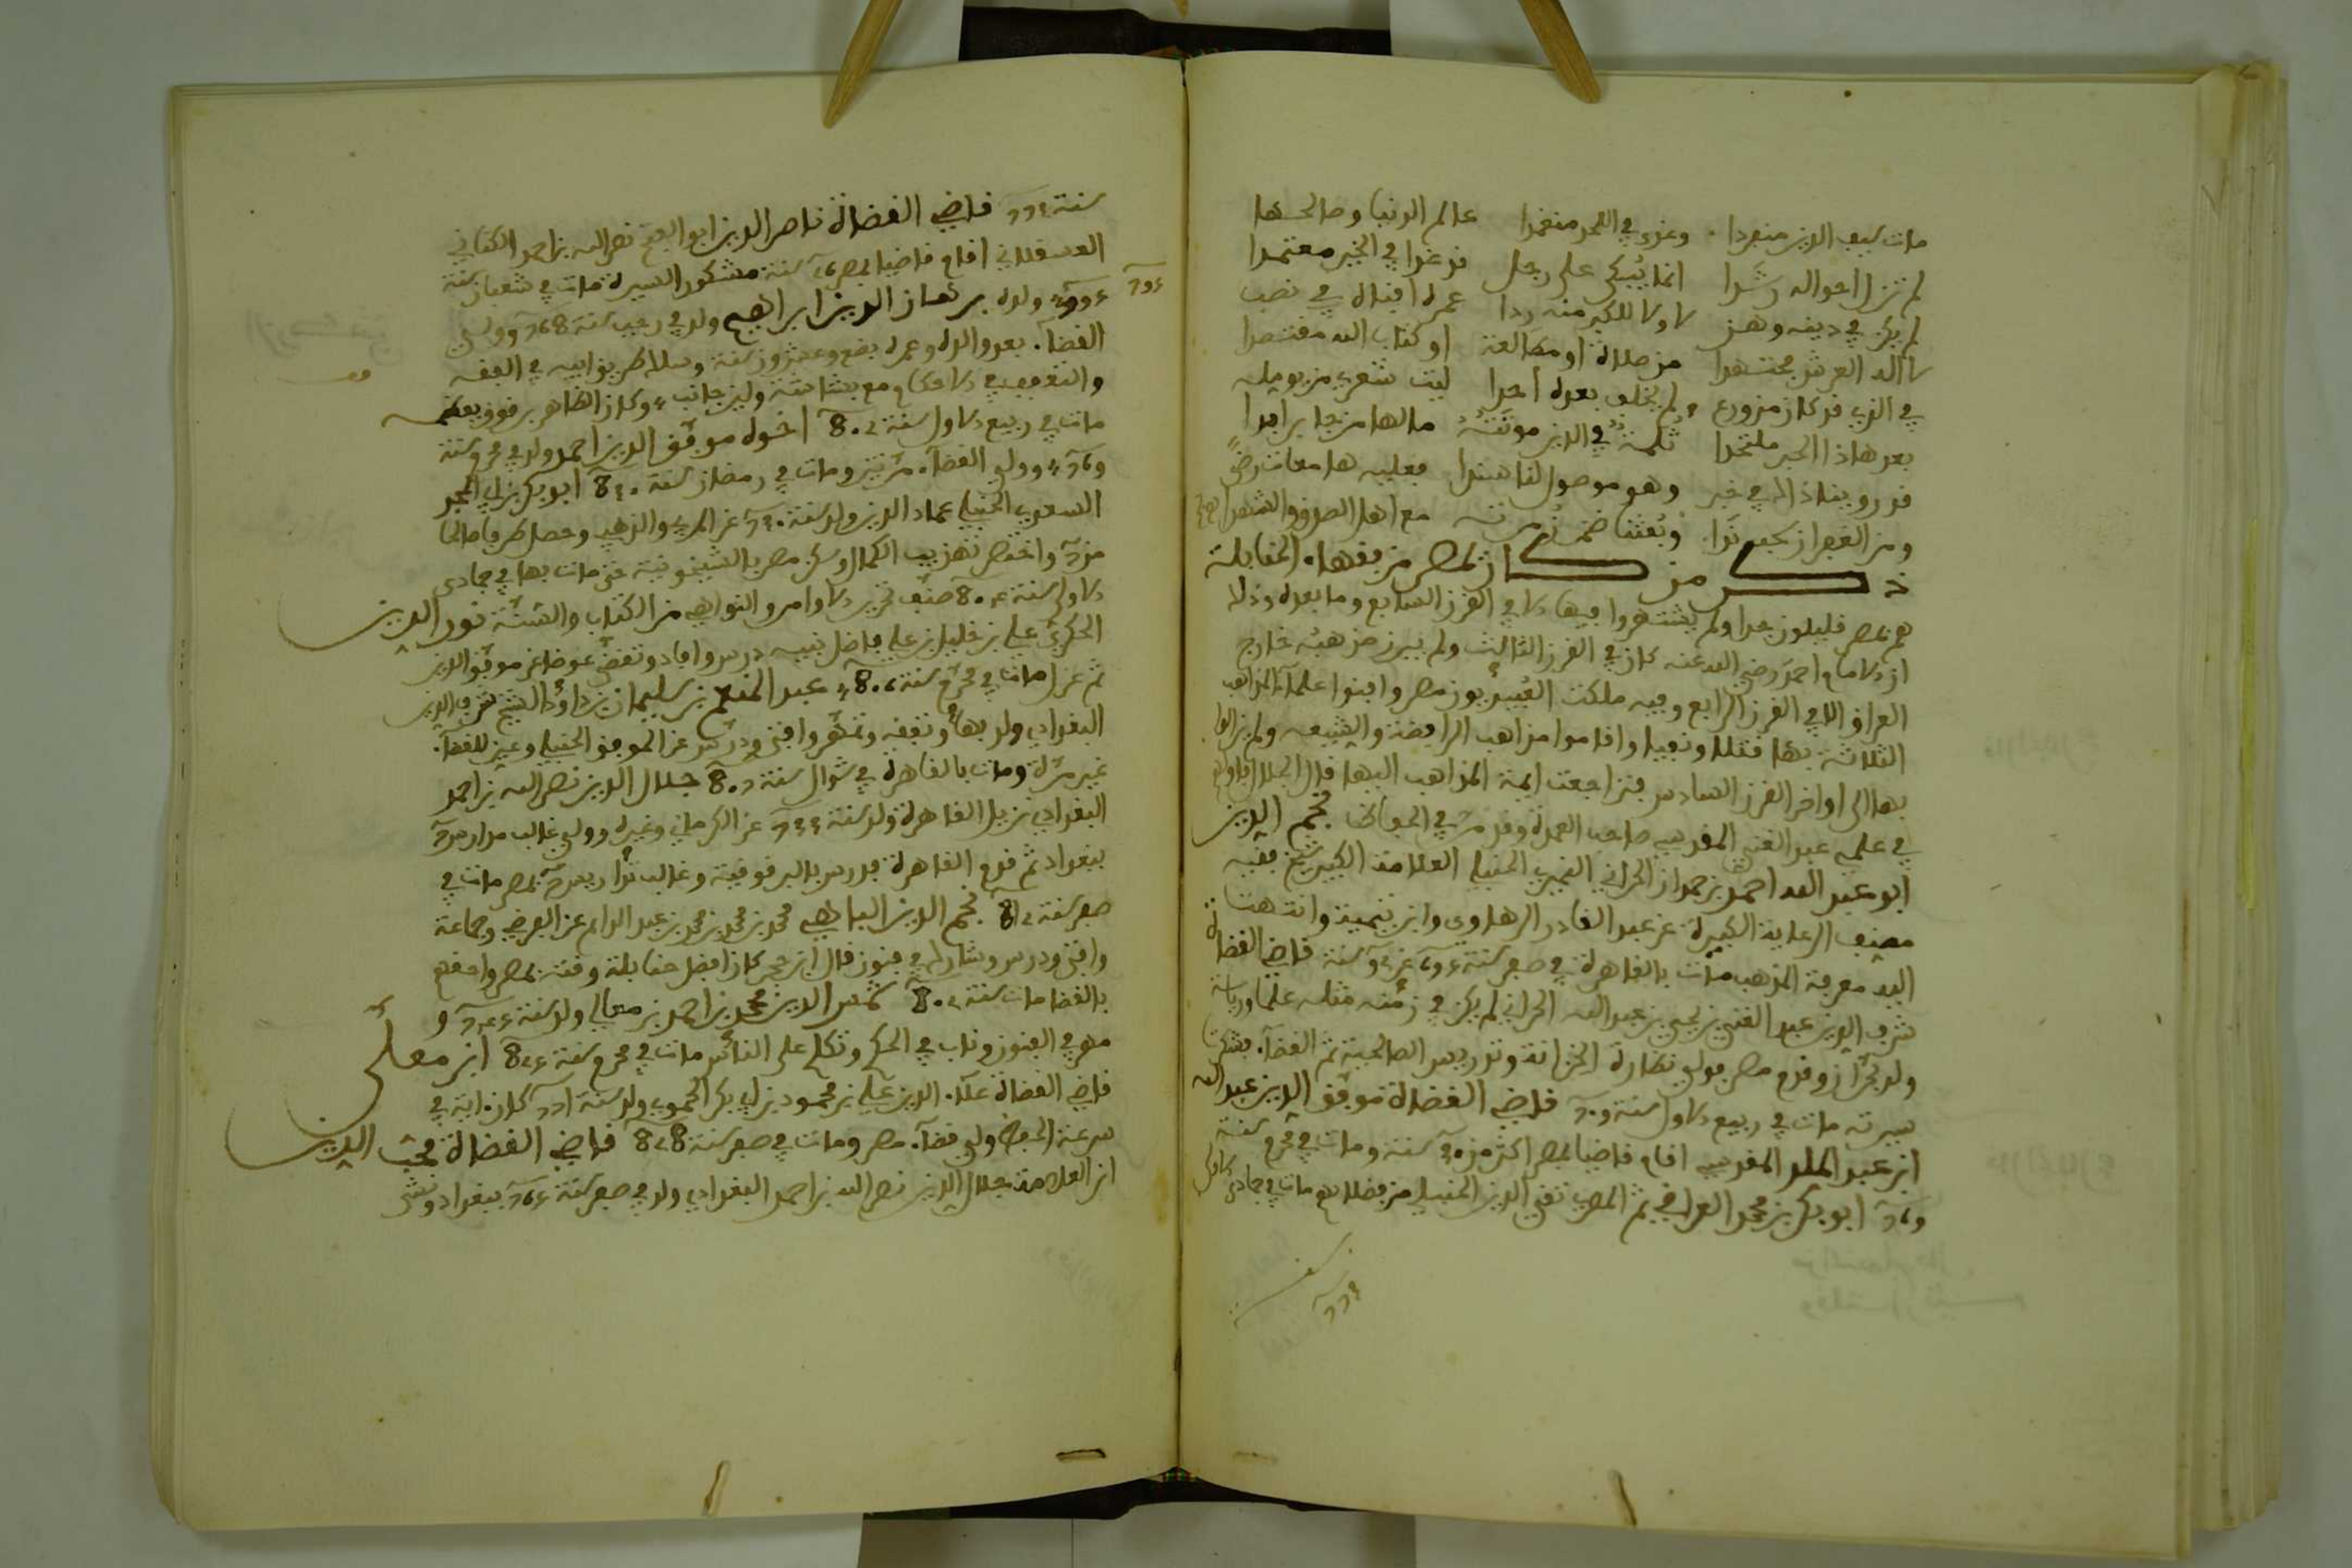 مات سيف الدين منفردا وغدى في اللحد منغمدا عالم الدنيا وصالحها
لم تزل احواله رشدا انما يُبكى على رجل قد غدا في الخير معتمدا
لم يكن في دينه وهن لا ولا للكبر منه ردا عمره افناه في نصب
لاله العرش مجتهدا من صلاة او مطالعة او كتاب الله مقتصدا
في الذي قد كان من ورع لم يخلف بعده احدا ليت شعري من يومله
بعد هاذا الحبر ملتحدا ثلمة في الدين موتته ما لها من جابر ابدا
قد روينا ذاك في خبر وهو موصول لنا سندا فعليه هامعات رضى
ومن الغفران سحب ندا وبعثنا ضمن زمرته مع اهل الصدق والشهدا
ذكر من كان بمصر من فقهاء الحنابلة
هم بمصر قليلون جدا ولم يشتهروا فيها الا في القرن السابع وما بعده وذلك
ان الامام احمد رضي الله عنه كان في القرن الثالث ولم يبرز مذهبه خارج
العراق الا في القرن الرابع وفيه ملكت العبيديون مصر وافنوا علماء المذاهب
الثلاثة بها قتلا ونفيا واقاموا مذاهب الرافضة والشيعه ولم يزالوا
بها الى اواخر القرن السادس فتراجعت ايمة المذاهب اليها
في علمي عبد الغني المقدسي صاحب العمدة وقد مر في الحفاظ نجم الدين
ابو عبد الله احمد بن حمدان الحراني النميري الحنبلي العلامة الكبير شيخ فقيه
مصنف الرعاية الكبيرة عن عبد القادر الرهاوي وابن تيمية وانتهت
اليه معرفة المذهب مات بالقاهرة في صفر سنة قاضي القضاة
شرف الدين عبد الغني بن يحيى بن عبد الله الحراني لم يكن في زمنه مثله علما ورياسة
ولد بحران وقدم مصر فولي نظارة الخزانة وتدريس الصالحية ثم القضاء فشكرت
سيرته مات في ربيع الاول سنة قاضي القضاة موفق الدين عبد الله
ابن عبد الملك المقدسي اقام قاضيا بمصر اكثر من سنة ومات في محرم سنة
ابو بكر بن محمد العراقي ثم المصري تقي الدين الحنبلي من فضلائهم مات في جمادى
سنة
سنة قاضي القضاة ناصر الدين ابو الفتح نصر الله بن احمد الكناني
العسقلاني اقام قاضيا بمصر سنة مشكور السيرة مات في شعبان سنة
ولده برهان الدين ابراهيم ولد في رجب سنة وولي
القضاء بعد والده وعمره بضع وعشرون سنة وسلك طريق ابيه في العفه
والتعفف في الاحكام مع بشاشة ولين جانب وكان الظاهر برقوق يعظمه
مات في ربيع الاول سنة اخوه موفق الدين احمد ولد في محرم سنة
وولي القضاء مرتين ومات في رمضان سنة ابو بكر بن ابي المجد
السعدي الحنبلي عماد الدين ولد سنة عن المزي والذهبي وحصل طرفا صالحا
واختصر تهذيب الكمال وسكن مصر بالشيخونية حتى مات بها في جمادى
الاولى سنة صنف تحرير الاوامر والنواهي من الكتاب والسنة نور الدين
الحكري علي بن خليل بن علي فاضل نبيه درس وافاد وتقضى عوضا عن موفق الدين
ثم عزل مات في محرم سنة عبد المنعم بن سليمان بن داود الشيخ شرف الدين
البغدادي ولد بها وتفقه وتمهر وافتى ودرس عن الموفق الحنبلي وعين للقضاء
غير مرة ومات بالقاهرة في شوال سنة جلال الدين نصر الله بن احمد
البغدادي نزيل القاهرة ولد سنة عن الكرماني وغيره وولي غالب مدارس
ببغداد ثم قدم القاهرة فدرس بالبرقوقية وغالب تداريس بمصر مات في
صفر سنة نجم الدين الباهي محمد بن محمد بن محمد بن عبد الدايم عن العرضي وجماعة
وافتى ودرس وشارك في فنون قال ابن حجر كان افضل حنابلة وقته بمصر واحقهم
بالقضا مات سنة شمس الدين محمد بن احمد بن معالي ولد سنة و
مهر في الفنون وناب في الحكم وتكلم على الناس مات في محرم سنة ابن مغلي
قاضي القضاة علاء الدين علي بن محمود بن ابي بكر الحموي ولد سنة كان اية في
سرعة الحفظ ولي قضاء مصر ومات في صفر سنة 828 قاضي القضاة محب الدين
ابن العلامة جلال الدين نصر الله بن احمد البغدادي ولد في صفر سنة ببغداد ونشى